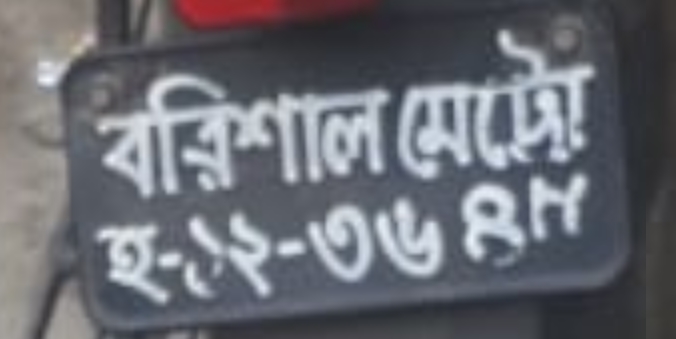 বরিশাল মেট্রো
হ-১২-৩৬